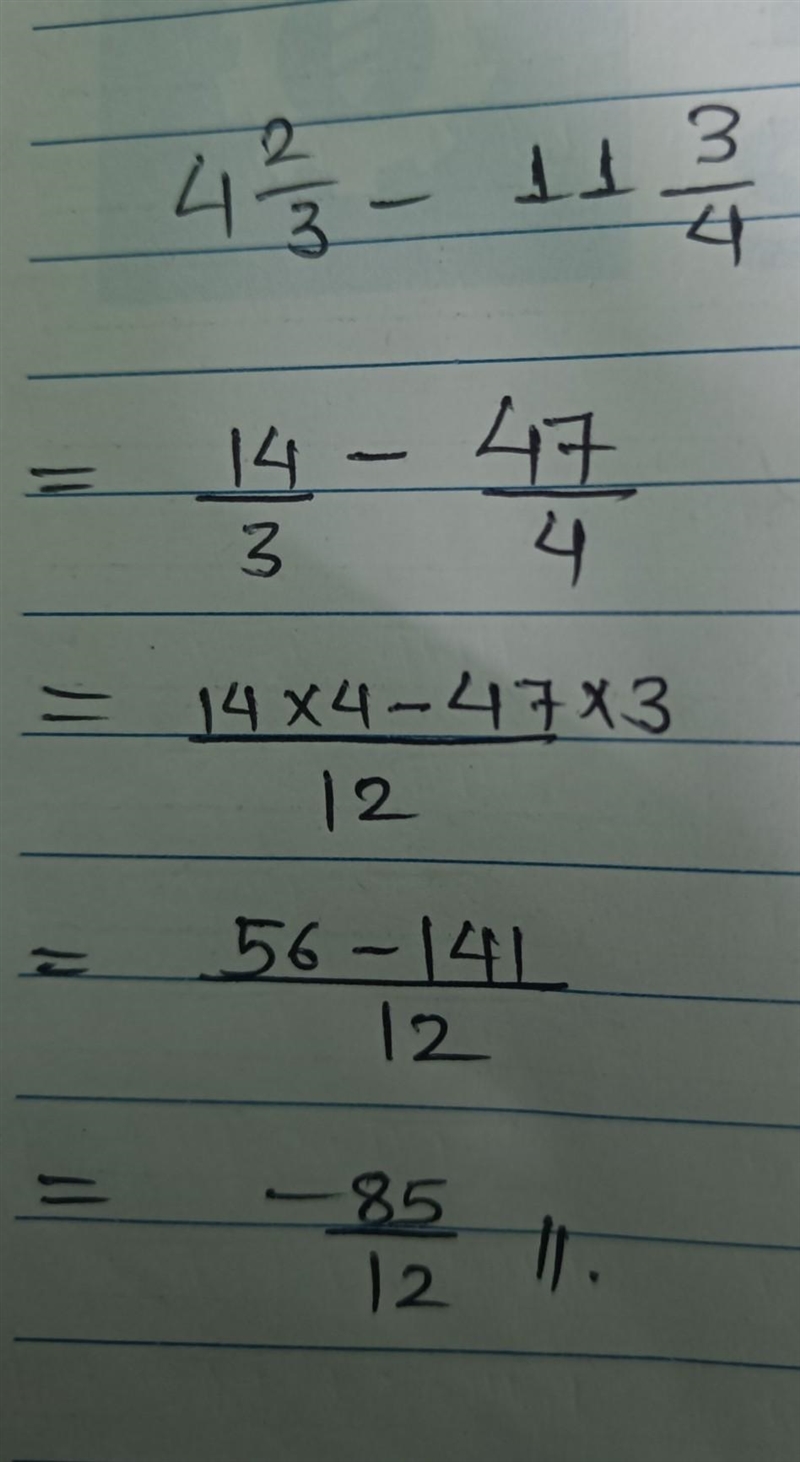 4 2/3 - 11 3/4
= 14/3 - 47/4
= 14×4-47×3/12
= 56-141/12
= -85/12 //.